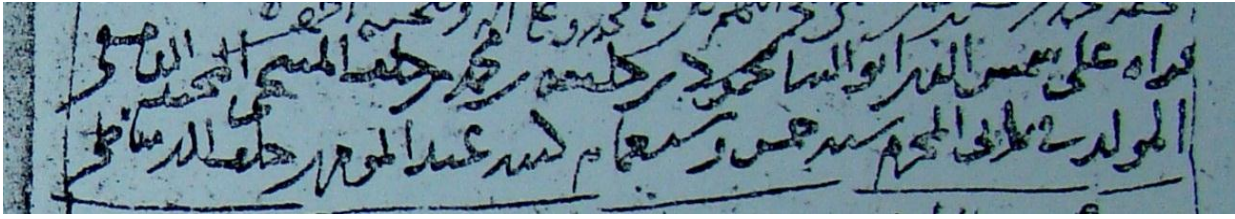 قراه على شمس الدين ابو الثنا محمود بن خليفه بن محمد بن خلف المنبجي المحتد الدمشقي
المولد في ثاني المحرم سنه خمس وسبعمايه كتبه عبد المومن بن خلف الدمياطي